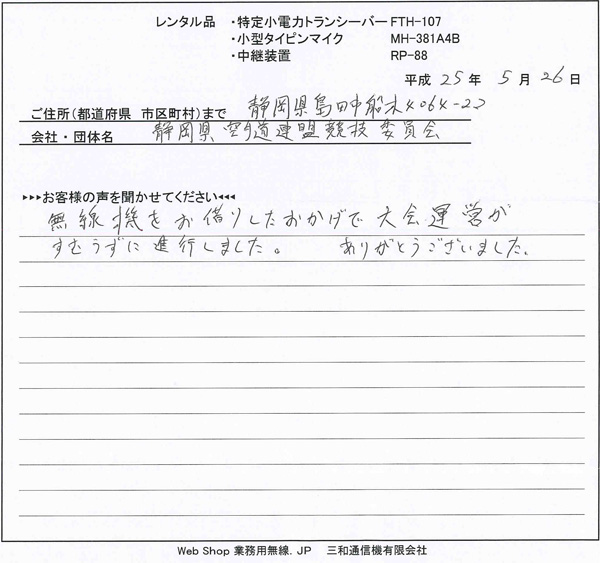 レンタル品 ・特定小電力トランシーバーFTH-107
・小型タイピンマイク MH-381A4B
・中継装置 RP-88
平成 25 年 5 月 26 日
ご住所(都道府県 市区町村)まで 静岡県島田中船木4064-22
会社・団体名 静岡県空道連盟競技委員会
▸▸▸お客様の声を聞かせてください◂◂◂
無線機をお借りしたおかげで大会運営が
すむうずに進行しました。 ありがとうございました。
Web Shop 業務用無線.JP 三和通信機有限会社